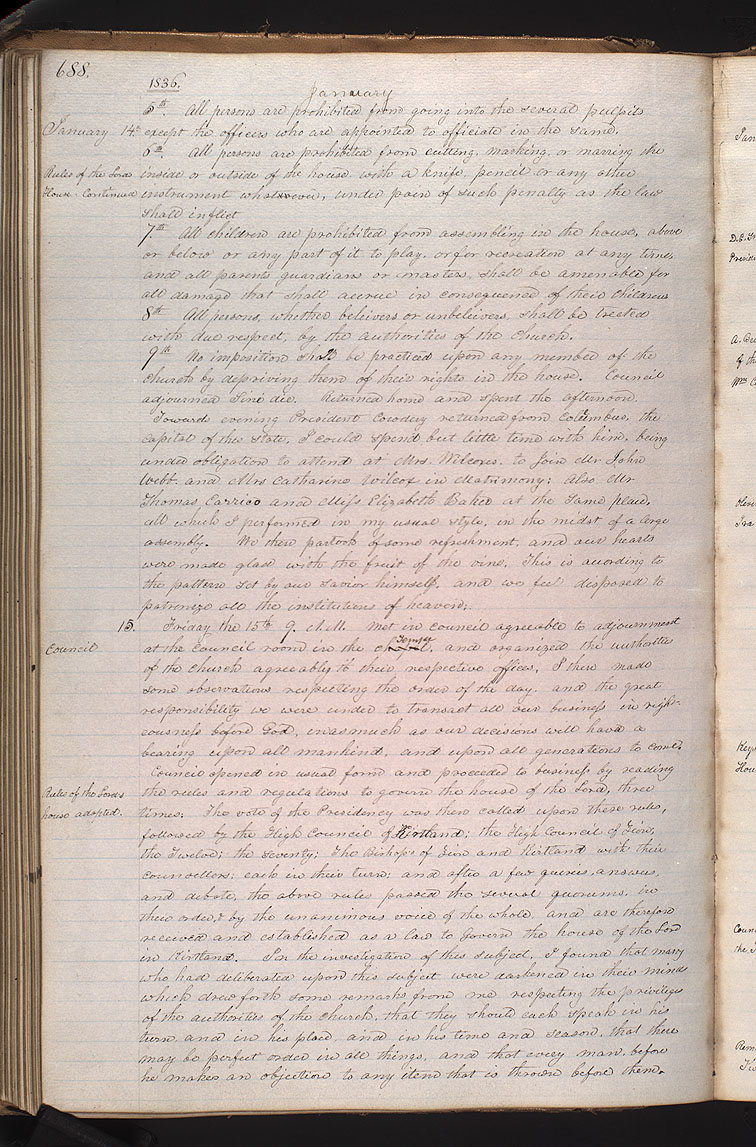 688.
1836.
January
5th. All persons are prohibited from going into the several pulpits
January 14th except the officers who are appointed to officiate in the same.
6th. All persons are prohibited from cutting, marking, or marring the
Rules of the Lords inside or outside of the house with a knife, pencil or any other
House - Continued instrument whatsoever, under pain of such penalty as the law
shall inflict
7th All children are prohibited from assembling in the house, above
or below or any part of it to play, or for recreation at any time,
and all parents guardians or masters, shall be amenable for
all damage that shall accrue in consequence of their children
8th All persons, whether beleivers or unbeleivers, shall be treated
with due respect, by the authorities of the Church.
9th No imposition shall be practiced upon any member of the
Church by depriving them of their rights in the house. Council
adjourned Sini die. Returned home and spent the afternoon.
Toward evening President Cowdery returned from Columbus, the
capital of this State, I could spend but little time with him, being
under obligation to attend at Mrs. Wilcoxs. to join Mr John
Webb. and Mrs Catharine Wilcox in Matrimony; also Mr
Thomas Carrico and Miss Elizabeth Baker at the same place,
all which I performed in my usual style, in the midst of a large
assembly. We then partook of some refreshment, and our hearts
were made glad with the fruit of the vine. This is according to
the pattern set by our Savior himself, and we feel disposed to
patronize all the institutions of heaven.
15. Friday the 15th 9. A.M. met in council agreeable to adjournment
Council at the council room in the chapel Temple, and organized the authorities
of the church agreeably to their respective offices, I then made
some observations respecting the order of the day, and the great
responsibility we were under to transact all our business in right-
eousness before God, inasmuch as our decisions will have a
bearing upon all mankind, and upon all generations to come.
Council opened in usual form and proceeded to business, by reading
Rules of the Lords the rules and regulations to govern the house of the Lord, three
house adopted. times; The vote of the Presidency was then called upon these rules,
followed by the High Council of Kirtland; the High Council of Zion,
the Twelve; the Seventy; The Bishops of Zion and Kirtland with their
councellers; each in their turn; and after a few queries, answers,
and debate, the above rules passed the several quorums, in
their order, & by the unanimous voice of the whole, and are therefore
received and established as a law to govern the house of the Lord
in Kirtland. In the investigation of this subject, I found that many
who had deliberated upon this subject were darkened in their minds
which drew forth some remarks from me respecting the privileges
of the authorities of the church, that they should each speak in his
turn and in his place, and in his time and season, that there
may be perfect order in all things, and that every man, before
he makes an objection to any item that is thrown before them.